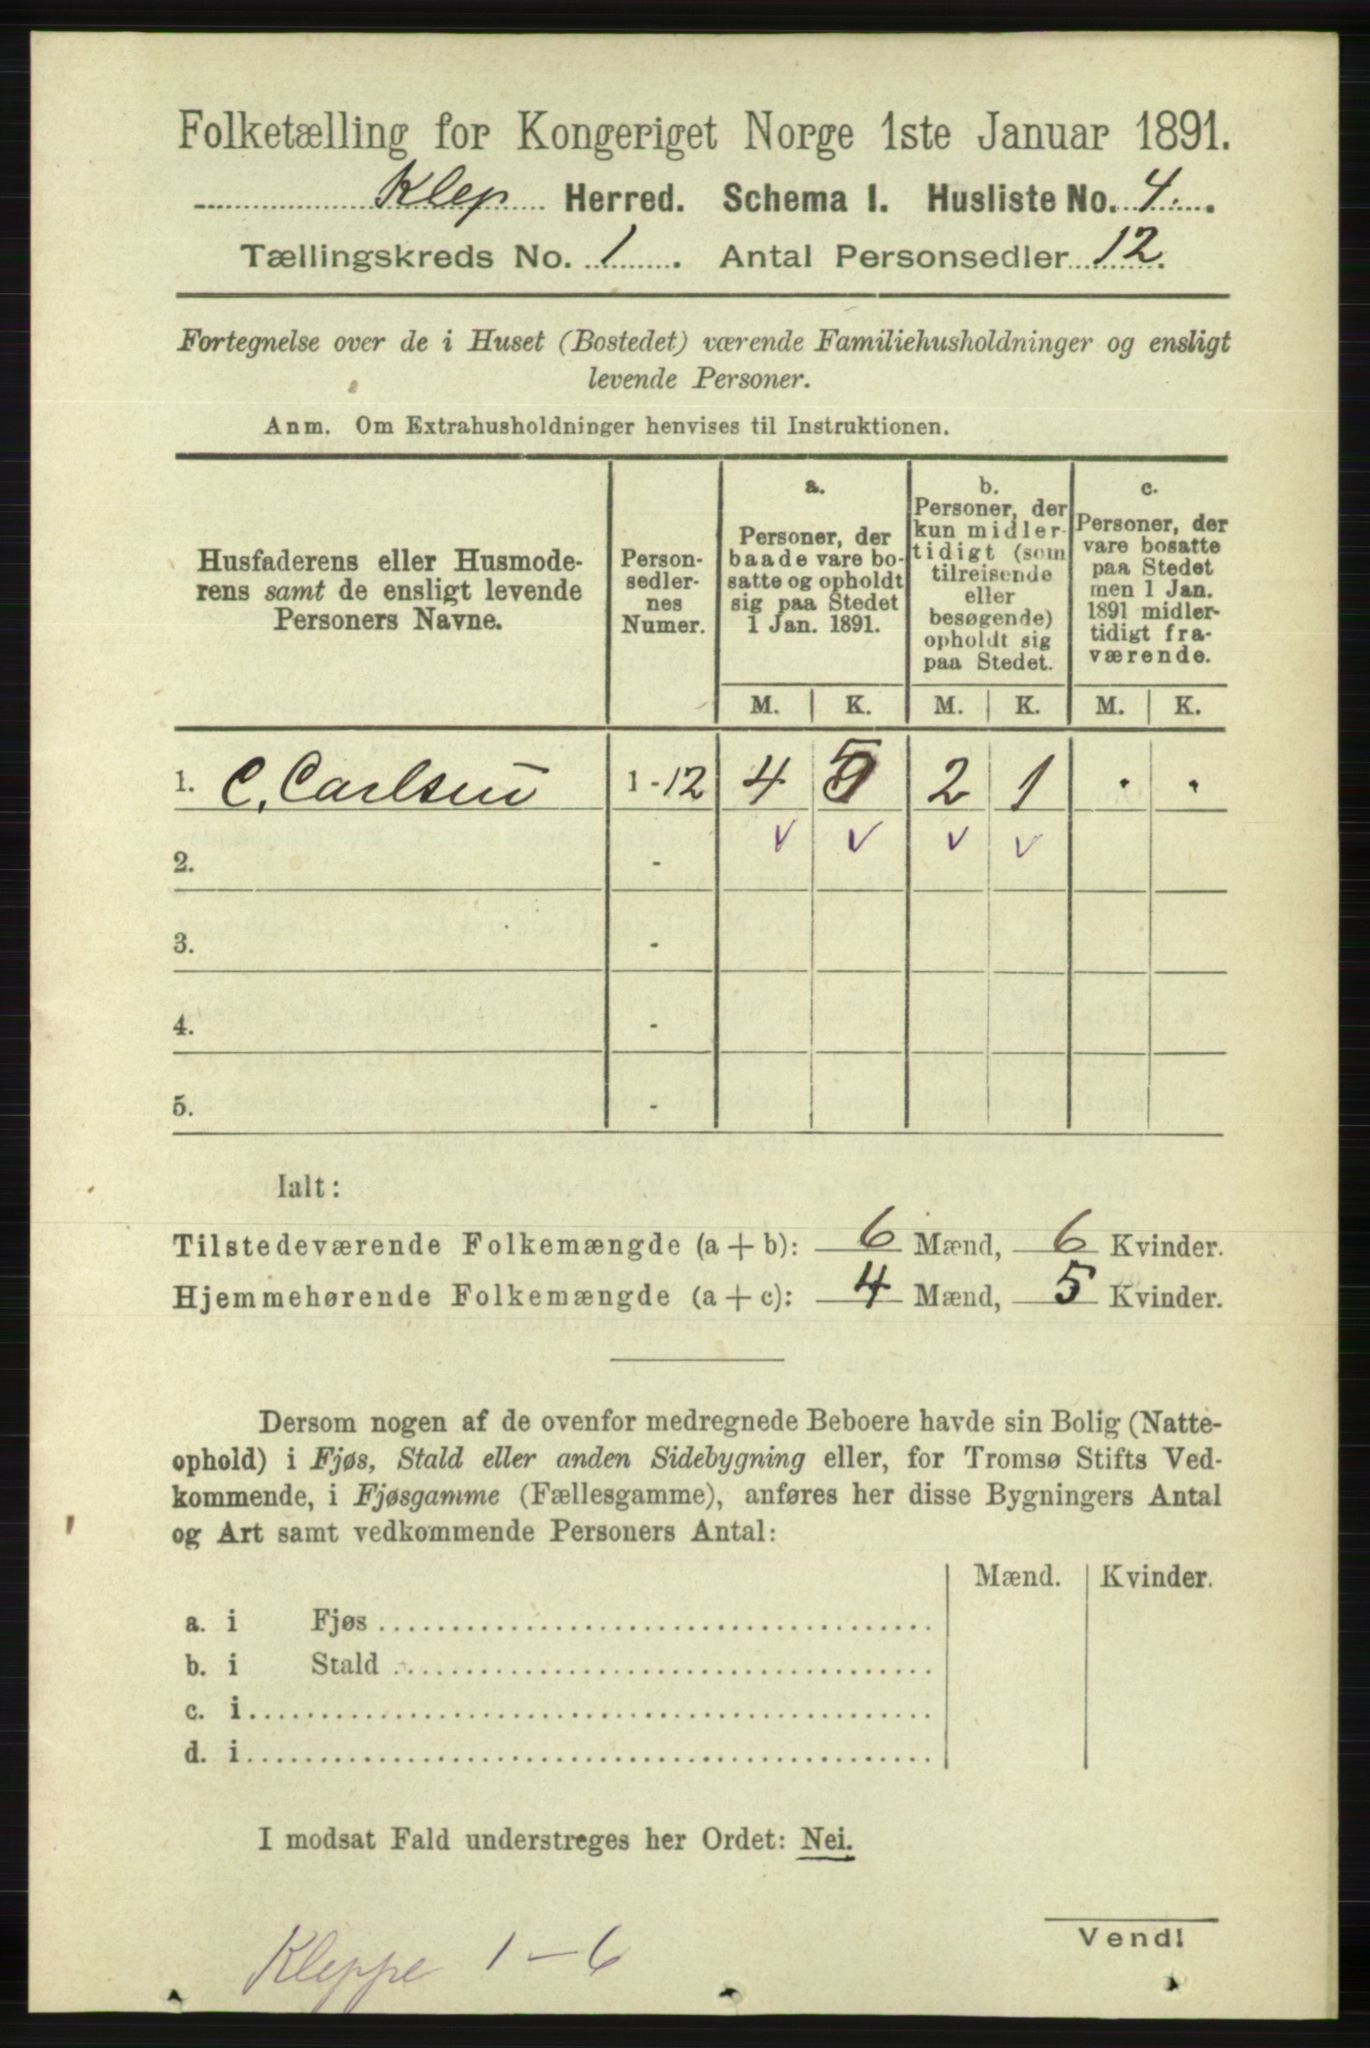 Folketælling for Kongeriget Norge 1ste Januar 1891.
Klep Herred. Schema I. Husliste No. 4.
Tællingskreds No. 1. Antal Personsedler 12.
Fortegnelse over de i Huset (Bostedet) værende Familiehusholdninger og ensligt
levende Personer.
Anm. Om Extrahusholdninger henvises til Instruktionen.
Husfaderens eller Husmode-
rens samt de ensligt levende
Personers Navne.
Person-
sedler-
nes
Numer.
a.
Personer, der
baade vare bo-
satte og opholdt
sig paa Stedet
1 Jan. 1891.
b.
Personer, der
kun midler-
tidigt (som
tilreisende
eller
besøgende)
opholdt sig
paa Stedet.
c.
Personer, der
vare bosatte
paa Stedet
men 1 Jan.
1891 midler-
tidigt fra-
værende.
M. K. M. K. M. K.
1. C. Carlsen 1-12 4 5 2 1 . .
2. -
3. -
4. -
5. -
Ialt:
Tilstedeværende Folkemængde (a + b): 6 Mænd, 6 Kvinder.
Hjemmehørende Folkemængde (a + c): 4 Mænd, 5 Kvinder.
Dersom nogen af de ovenfor medregnede Beboere havde sin Bolig (Natte-
ophold) i Fjøs, Stald eller anden Sidebygning eller, for Tromsø Stifts Ved-
kommende, i Fjøsgamme (Fællesgamme), anføres her disse Bygningers Antal
og Art samt vedkommende Personers Antal:
Mænd. Kvinder.
a. i Fjøs
b. i Stald
c. i
d. i
I modsat Fald understreges her Ordet: Nei.
Vend!
Kleppe 1-6